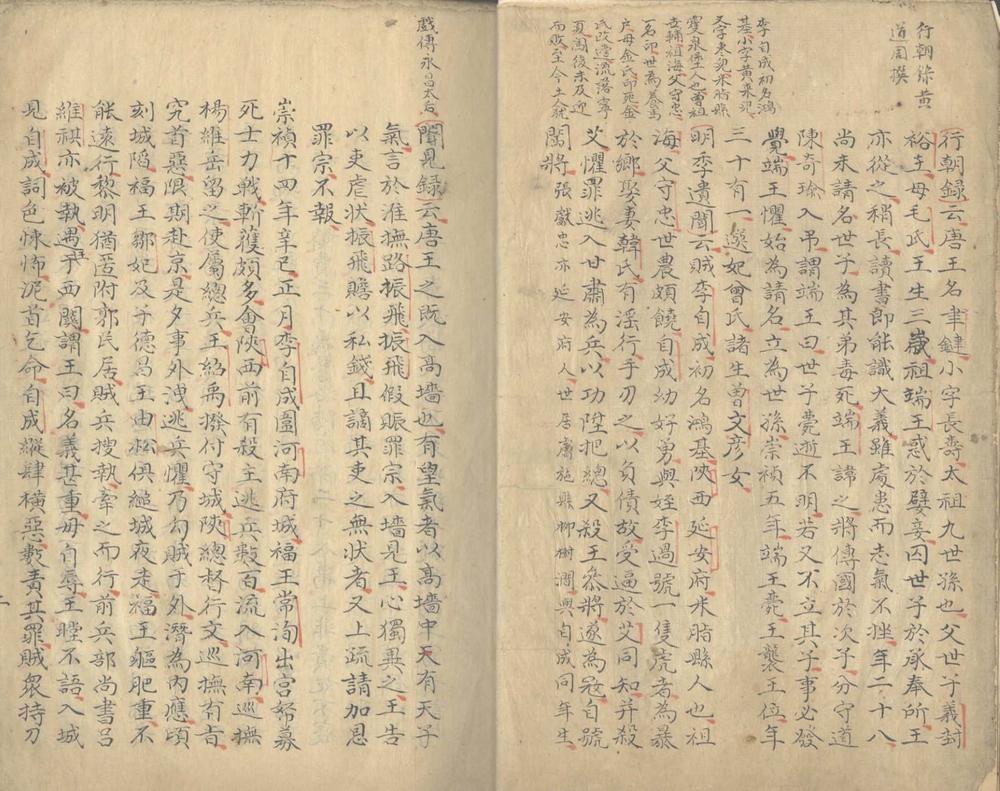 行朝錄黃
道周撰
行朝錄云唐王名聿鍵小字長壽太祖九世孫也父世子義封
裕王母毛氏王生三歲祖端王惑於嬖妾囚世子於承奉所王
亦從之稍長讀書即能識大義雖處患而志氣不挫年二十八
尚未請名世子為其弟毒死端王諱之將傳國於次子分守道
陳奇瑜入吊謂端王曰世子薨逝不明若又不立其子事必發
覺端王懼始為請名立為世孫崇禎五年端王薨王襲王位年
三十有一選妃曾氏諸生曾文彥女
李自成初名鴻
基小字黃來兒
又字棗兒米脂縣
雙泉堡人也曾祖
世輔祖海父守忠
一名印世為養馬
戶母金氏印死金
氏改適流落寧
夏闖後未及迎
而敗至今土人就
明季遺聞云賊李自成初名鴻基陝西延安府米脂縣人也祖
海父守忠世農頗饒自成幼好勇與姪李過號一隻虎者為暴
於鄉娶妻韓氏有淫行手刃之以負債故受逼於艾同知并殺
艾懼罪逃入甘肅為兵以功陞把總又殺王叅將遂為寇自號
闖將張獻忠亦延安府人世居膚施縣柳樹澗與自成同年生
戲傳永昌太后
聞見録云唐王之既入高墻也有望氣者以高墻中天有天子
氣言於淮撫路振飛振飛假賑罪宗入墻見王心獨異之王告
以吏虐狀振飛贍以私錢且謫其吏之無狀者又上疏請加恩
罪宗不報
崇禎十四年辛巳正月李自成圍河南府城福王常洵出宮帑募
死士力戰斬獲頗多會陝西前有殺主逃兵數百流入河南巡撫
楊維岳留之使屬總兵王紹禹撥付守城陝總督行文巡撫有旨
究首惡限期赴京是夕事外洩逃兵懼乃勾賊于外潛為內應頃
刻城陷福王鄒妃及子德昌王由崧俱縋城夜走福王軀肥重不
能遠行黎明猶匿附郭民居賊兵搜執牽之而行前兵部尚書呂
維祺亦被執遇于西關謂王曰名義甚重毋自辱王瞠不語入城
見自成詞色怵怖泥首乞命自成縱肆橫惡數責其罪賊衆持刀